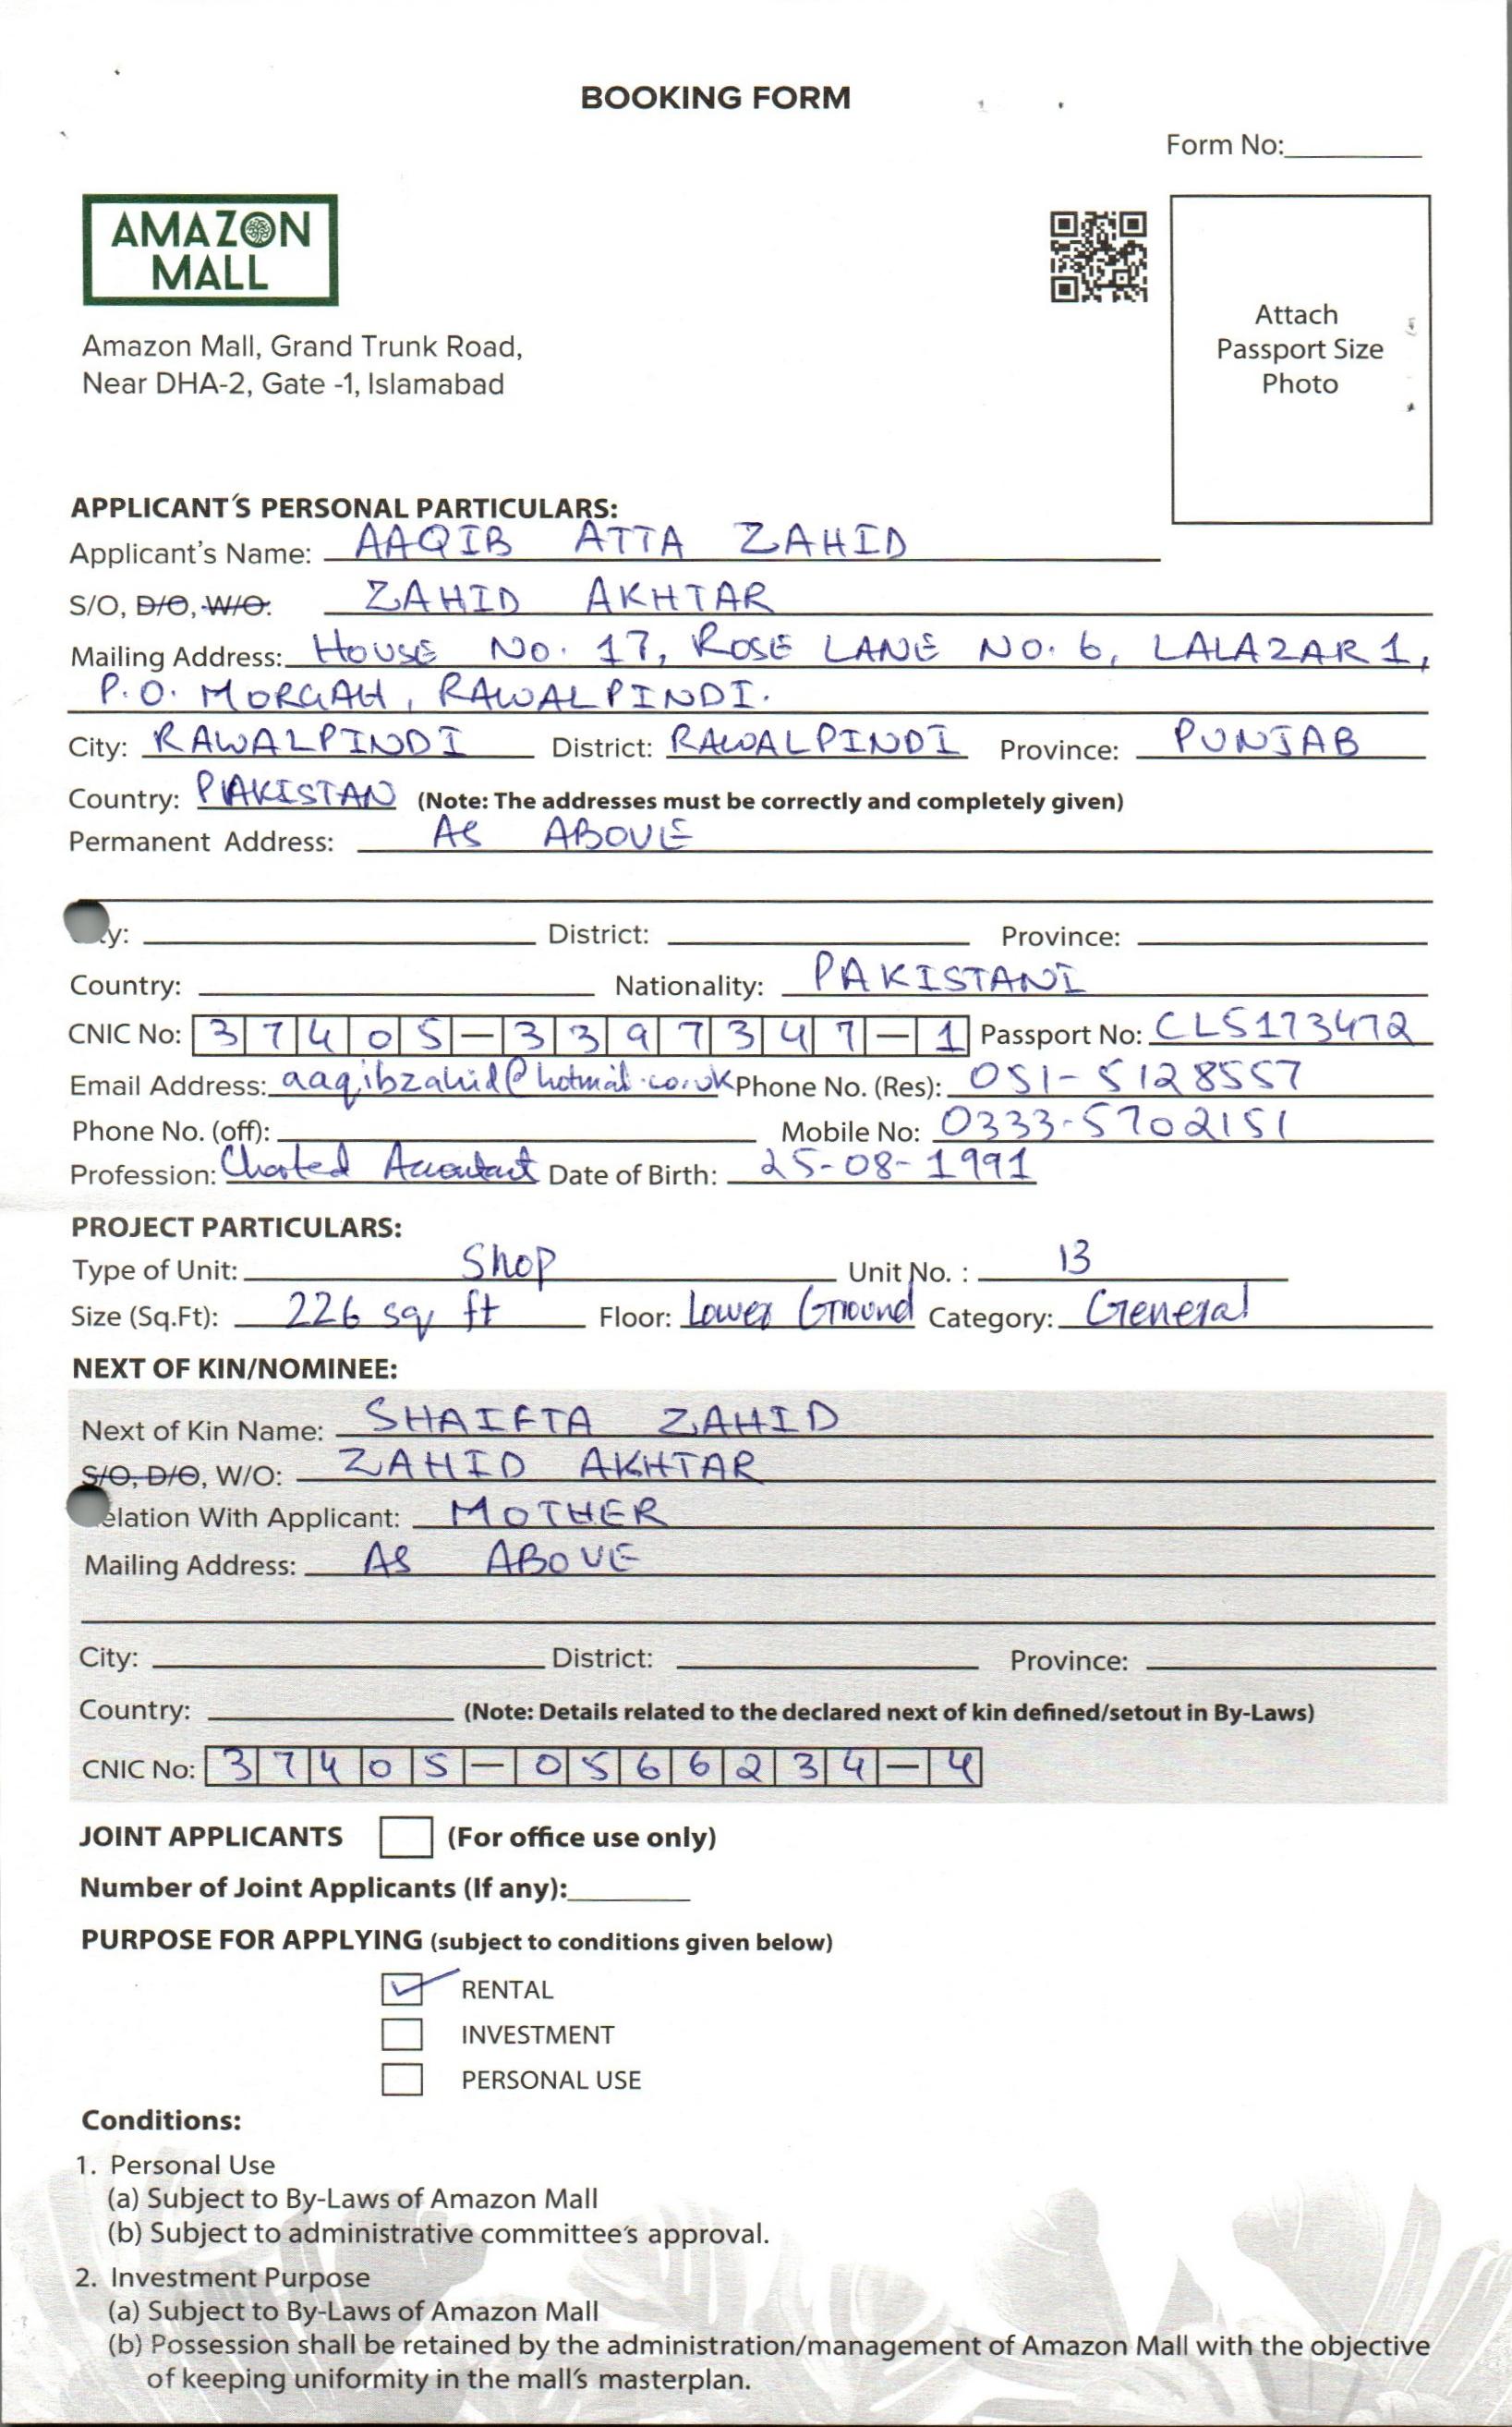 BOOKING FORM
Form No:
AMAZON
MALL
Attach
Passport Size
Photo
Amazon Mall, Grand Trunk Road,
Near DHA-2, Gate -1, Islamabad
APPLICANT'S PERSONAL PARTICULARS:
Applicant's Name: AAQIB ATTA ZAHID
S/O, D/O, W/O: ZAHID AKHTAR
Mailing Address: HOUSE NO. 17, ROSE LANE NO. 6, LALAZAR 1,
P.O. MORGAH, RAWALPINDI.
City: RAWALPINDI District: RAWALPINDI Province: PUNJAB
Country: PAKISTAN (Note: The addresses must be correctly and completely given)
Permanent Address: AS ABOVE
District: Province:
Country: Nationality: PAKISTANI
CNIC No: 37405-3397347-1 Passport No: CL5173472
Email Address: aaqibzahid@hotmail.co.uk Phone No. (Res): 051-5128557
Phone No. (off): Mobile No: 0333-5702151
Profession: Charted Accountant Date of Birth: 25-08-1991
PROJECT PARTICULARS:
Type of Unit: Shop Unit No. : 13
Size (Sq.Ft): 226 sq ft Floor: Lower Ground Category: General
NEXT OF KIN/NOMINEE:
Next of Kin Name: SHAIFTA ZAHID
S/O, D/O, W/O: ZAHID AKHTAR
elation With Applicant: MOTHER
Mailing Address: AS ABOVE
City: District: Province:
Country: (Note: Details related to the declared next of kin defined/setout in By-Laws)
CNIC No: 37405-0566234-4
JOINT APPLICANTS (For office use only)
Number of Joint Applicants (If any):
PURPOSE FOR APPLYING (subject to conditions given below)
RENTAL
INVESTMENT
PERSONAL USE
Conditions:
1. Personal Use
(a) Subject to By-Laws of Amazon Mall
(b) Subject to administrative committee's approval.
2. Investment Purpose
(a) Subject to By-Laws of Amazon Mall
(b) Possession shall be retained by the administration/management of Amazon Mall with the objective
of keeping uniformity in the mall's masterplan.